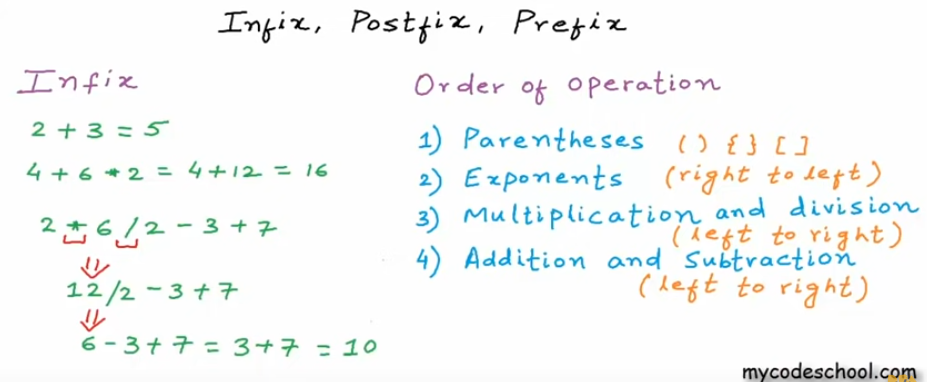 Infix, Postfix, Prefix
Infix
2 + 3 = 5
4 + 6 * 2 = 4 + 12 = 16
2 * 6 / 2 - 3 + 7
12/2 - 3 + 7
6 - 3 + 7 = 3 + 7 = 10
Order of operation
1) Parentheses () {} []
2) Exponents (right to left)
3) Multiplication and division
(left to right)
4) Addition and Subtraction
(left to right)
mycodeschool.com